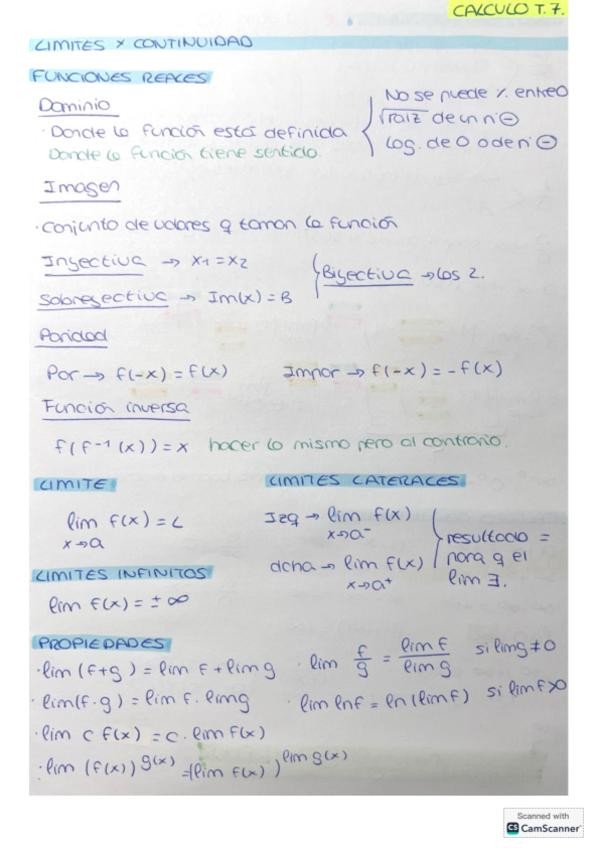 CALCULO T.7.
LIMITES Y CONTINUIDAD
FUNCIONES REALES
Dominio
· Donde la función está definida
Donde la función tiene sentido.
No se puede ٪ entre 0
√raiz de un nº ⊖
Log. de 0 o de nº ⊖
Imagen
· Conjunto de valores q toman la función
Inyectiva → x₁ = x₂
Sobreyectiva → Im(x) = B
Biyectiva → los 2.
Paridad
Par → f(-x) = f(x)
Impar → f(-x) = - f(x)
Función inversa
f(f⁻¹(x)) = x hacer lo mismo pero al contrario.
LIMITE
lim f(x) = L
x→a
LIMITES LATERALES
Izq → lim f(x)
x→a⁻
dcha → lim f(x)
x→a⁺
resultado =
para q el
lim ∃.
LIMITES INFINITOS
lim f(x) = ± ∞
PROPIEDADES
· lim (f+g) = lim f + lim g
· lim f/g = lim f/lim g si lim g ≠ 0
· lim(f·g) = lim f · lim g
· lim ln f = ln (lim f) si lim f > 0
· lim c f(x) = c · lim f(x)
· lim (f(x))^g(x) = (lim f(x))^lim g(x)
Scanned with
CS CamScanner